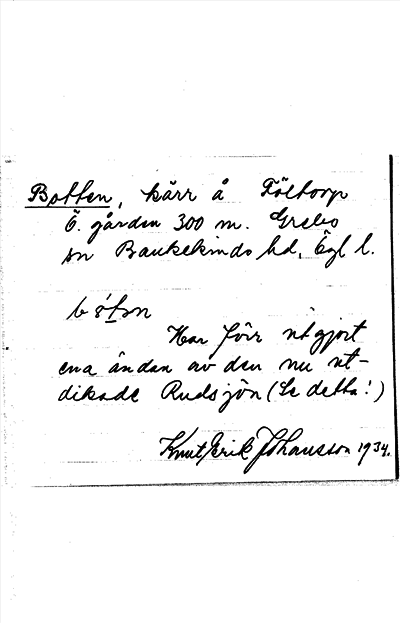 Botten, kärr å Föltorp
Ö. gården 300 m. Grebo
sn Bankekinds hd, Ögl l.
Har förr utgjort
ena ändan av den nu ut-
dikade Rudsjön (Se detta!)
Knut Erik Johansson 1934.